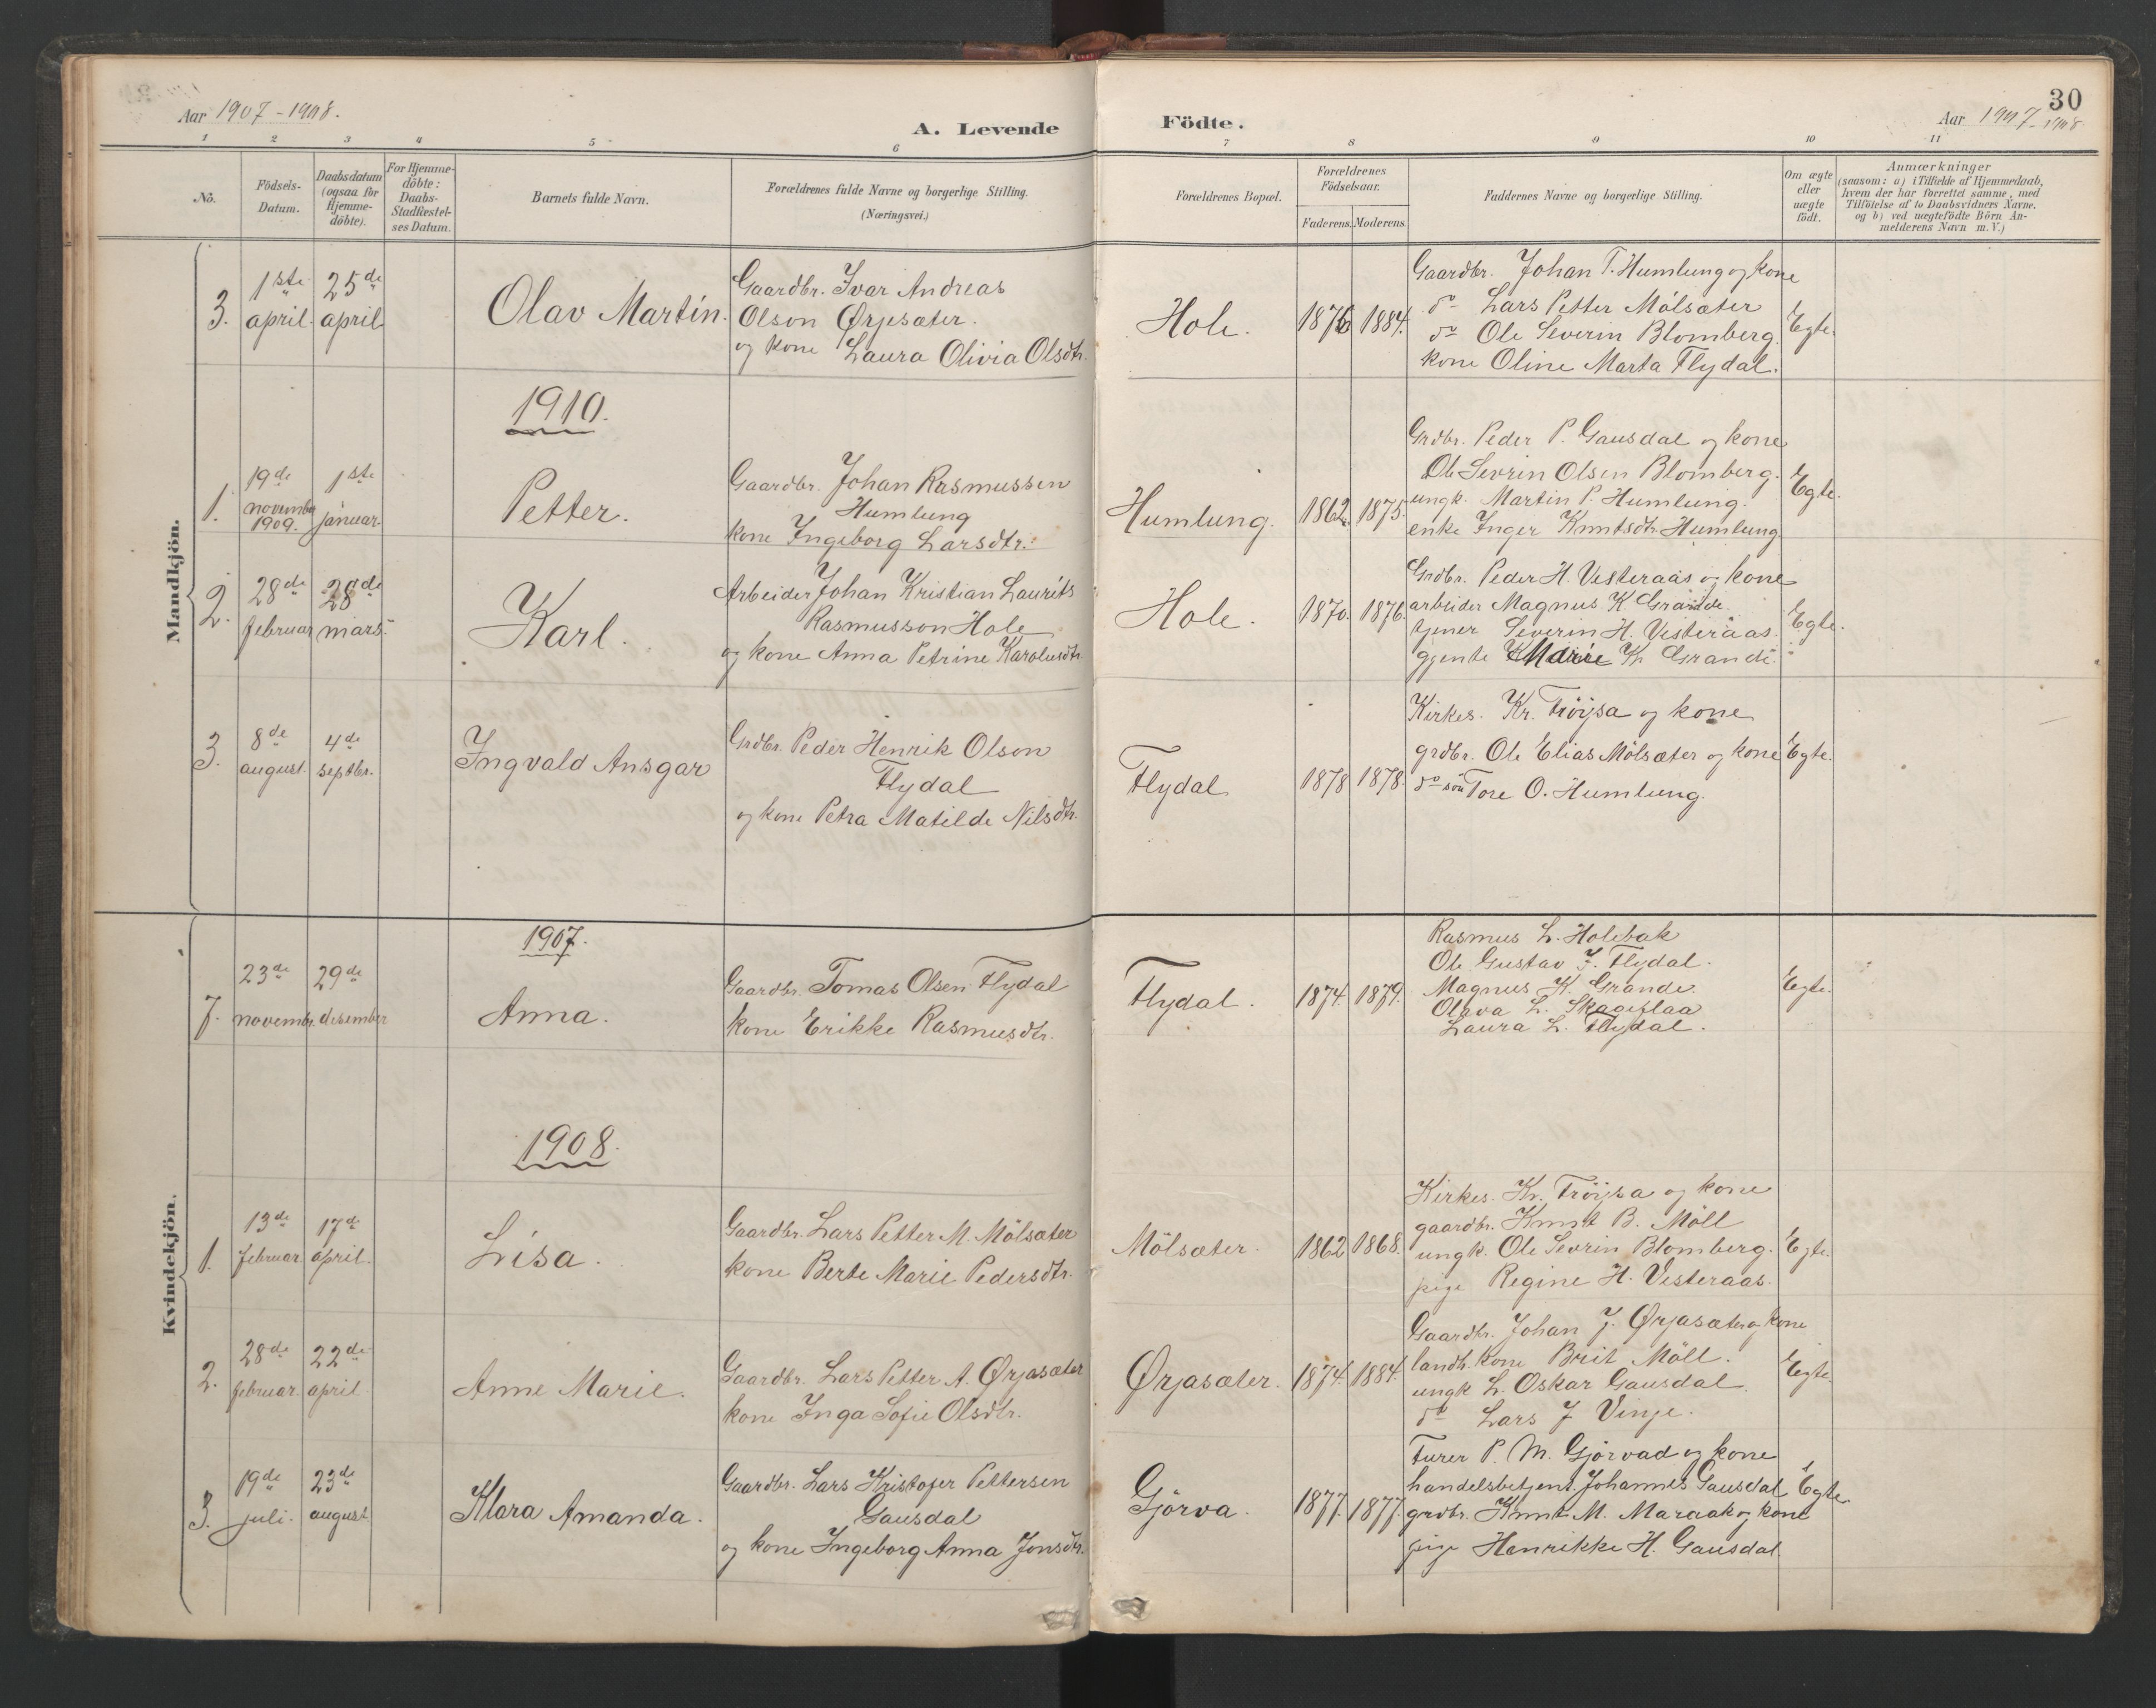 30
Aar 1907-1908.
A. Levende Födte.
Aar 1907-1908
1 2 3 4 5 6 7 8 9 10 11
No.
Födsels-Datum.
Daabsdatum (ogsaa for Hjemme-döbte).
For Hjemme-döbte: Daabs-Stadfæstel-ses Datum.
Barnets fulde Navn.
Forældrenes fulde Navne og borgerlige Stilling.
(Næringsvei.)
Forældrenes Bopæl.
Forældrenes Födselsaar.
Faderens. Moderens.
Faddernes Navne og borgerlige Stilling.
Om ægte eller uægte födt.
Anmærkninger
(saasom: a) i Tilfælde af Hjemmedaab,
hvem der har forrettet samme, med
Tilföielse af to Daabsvidners Navne.
og b) ved uægtefödte Börn An-
melderens Navn m. V.)
Mandkjön.
3. 1ste april. 25de april
Olav Martin.
Gaardbr. Ivar Andreas
Olson Ørjesæter.
og kone Laura Olivia Olsdtr.
Hole. 1876 1884.
Gaardbr. Johan T. Humlung og kone
do Lars Petter Mölsæter
do Ole Severin Blomberg.
kone Oline Marta Flydal.
Egte.
1910.
1. 19de novembr 1909. 1ste januar.
Petter.
Gaardbr. Johan Rasmussen
Humlung
kone Ingeborg Larsdtr.
Humlung. 1862. 1875.
Grdbr. Peder P. Gausdal og kone
Ole Sevrin Olsen Blomberg.
ungk. Martin P. Humlung.
enke Inger Knutsdtr. Humlung
Egte.
2. 28de februar 28de mars.
Karl.
Arbeider Johan Kristian Laurits
Rasmusson Hole
og kone Anna Petrine Karolusdtr.
Hole. 1870. 1876.
Grdbr. Peder H. Vesteraas og kone
arbeider Magnus K. Grande.
tjener Severin H. Vesteraas.
gjente Marie K. Grande.
Egte.
3. 8de august. 4de septbr.
Ingvald Ansgar
Grdbr. Peder Henrik Olson
Flydal
og kone Petra Matilde Nilsdtr.
Flydal 1878 1878.
Kirkes. Kr. Fröysa og kone
grdbr. Ole Elias Mölsæter og kone
do sön Tore O. Humlung.
Egte.
Kvindekjön.
1907.
7. 23de novembr. 29de desember
Anna.
Gaardbr. Tomas Olsen Flydal
kone Erikke Rasmusdtr.
Flydal. 1874. 1879.
Rasmus L. Holebak
Ole Gustav J. Flydal.
Magnus K. Grande
Olava L. Skageflaa
Laura L. Flydal.
Egte.
1908.
1. 13de februar. 17de april.
Lisa.
Gaardbr. Lars Petter M. Mölsæter
kone Berte Marie Pedersdtr.
Mölsæter. 1862 1868.
Kirkes. Kr. Fröysa og kone
gaardbr. Knut B. Möll
ungk. Ole Sevrin Blomberg.
pige Regine H. Vesteraas.
Egte.
2. 28de februar. 22de april.
Anne Marie.
Gaardbr. Lars Petter A. Ørjasæter
kone Inga Sofie Olsdtr.
Ørjasæter. 1874. 1884.
Gaardbr. Johan J. Ørjasæter og kone
landh. kone Brit Möll.
ungk L. Oskar Gausdal.
do Lars J Vinje.
Egte.
3. 19de juli. 23de august.
Klara Amanda.
Gaardbr. Lars Kristofer Pettersen
Gausdal
og kone Ingeborg Anna Jonsdtr.
Gjörva. 1877. 1877.
Furer P. M. Gjörvad og kone
handelsbetjent. Johannes Gausdal
grdbr. Knut M. Maraak og kone
pige Henrikke H. Gausdal.
Egte.